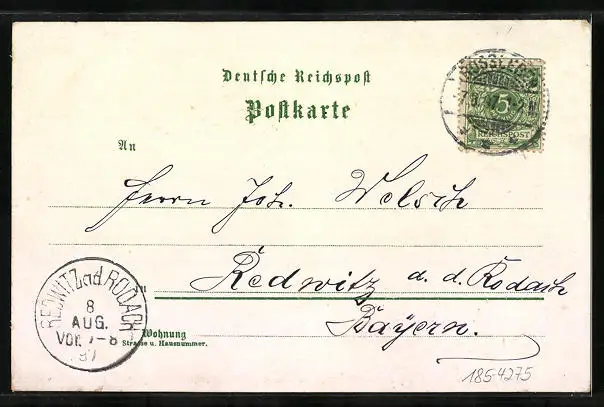 Deutsche Reichspost
Postkarte
5
REICHSPOST
An
Herrn Joh. Welsch
Redwitz a. d. Rodach
Bayern.
REDWITZ a.d. RODACH
8
AUG.
VOR. 7-8
97
Wohnung
Strasse u. Hausnummer.
185-4275